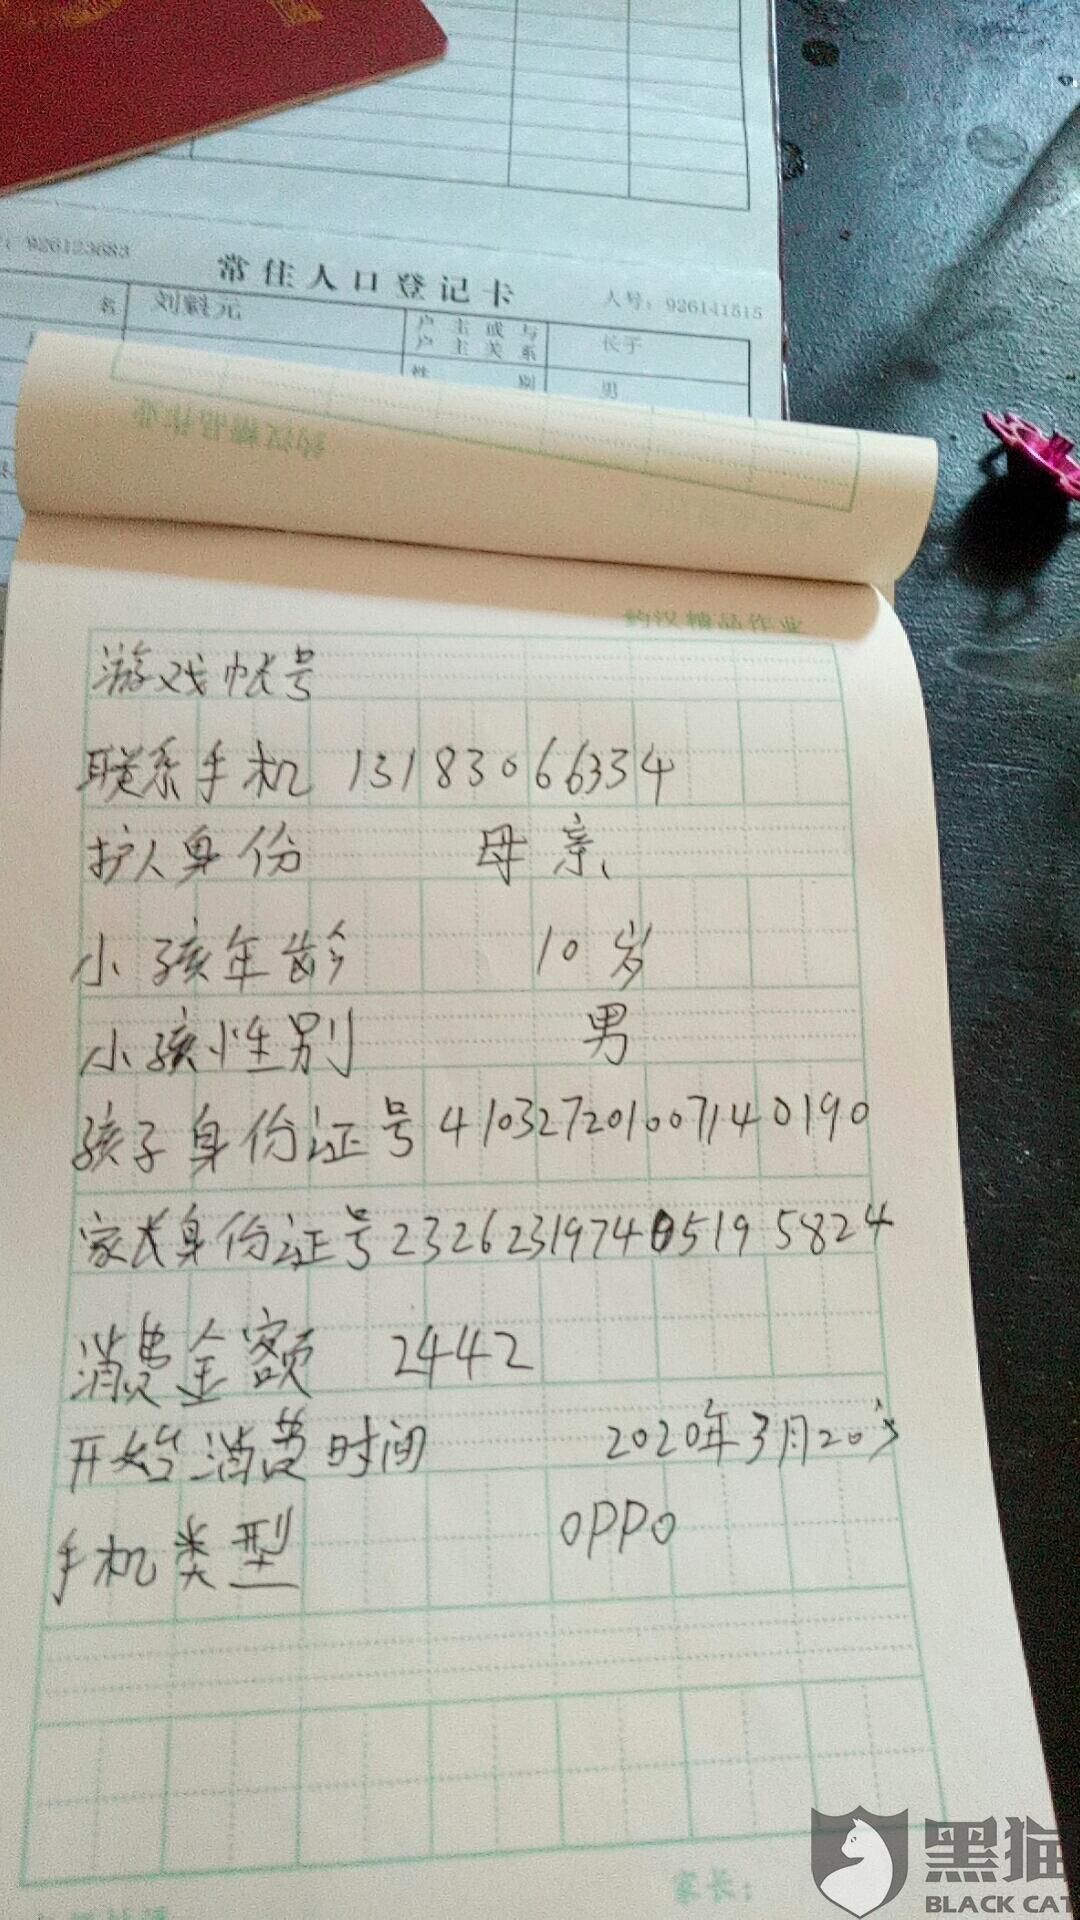 926123683
常住人口登记卡
人号：926141515
名 刘斁元 户主或与户主关系 长子
性别 男
约汉精品作业
约汉精品作业
游戏帐号
联系手机 13183066334
护人身份 母亲
小孩年龄 10岁
小孩性别 男
孩子身份证号 410327201007140190
家长身份证号 232623197405195824
消费金额 2442
开始消费时间 2020年3月20号
手机类型 OPPO
家长：
黑猫
BLACK CAT